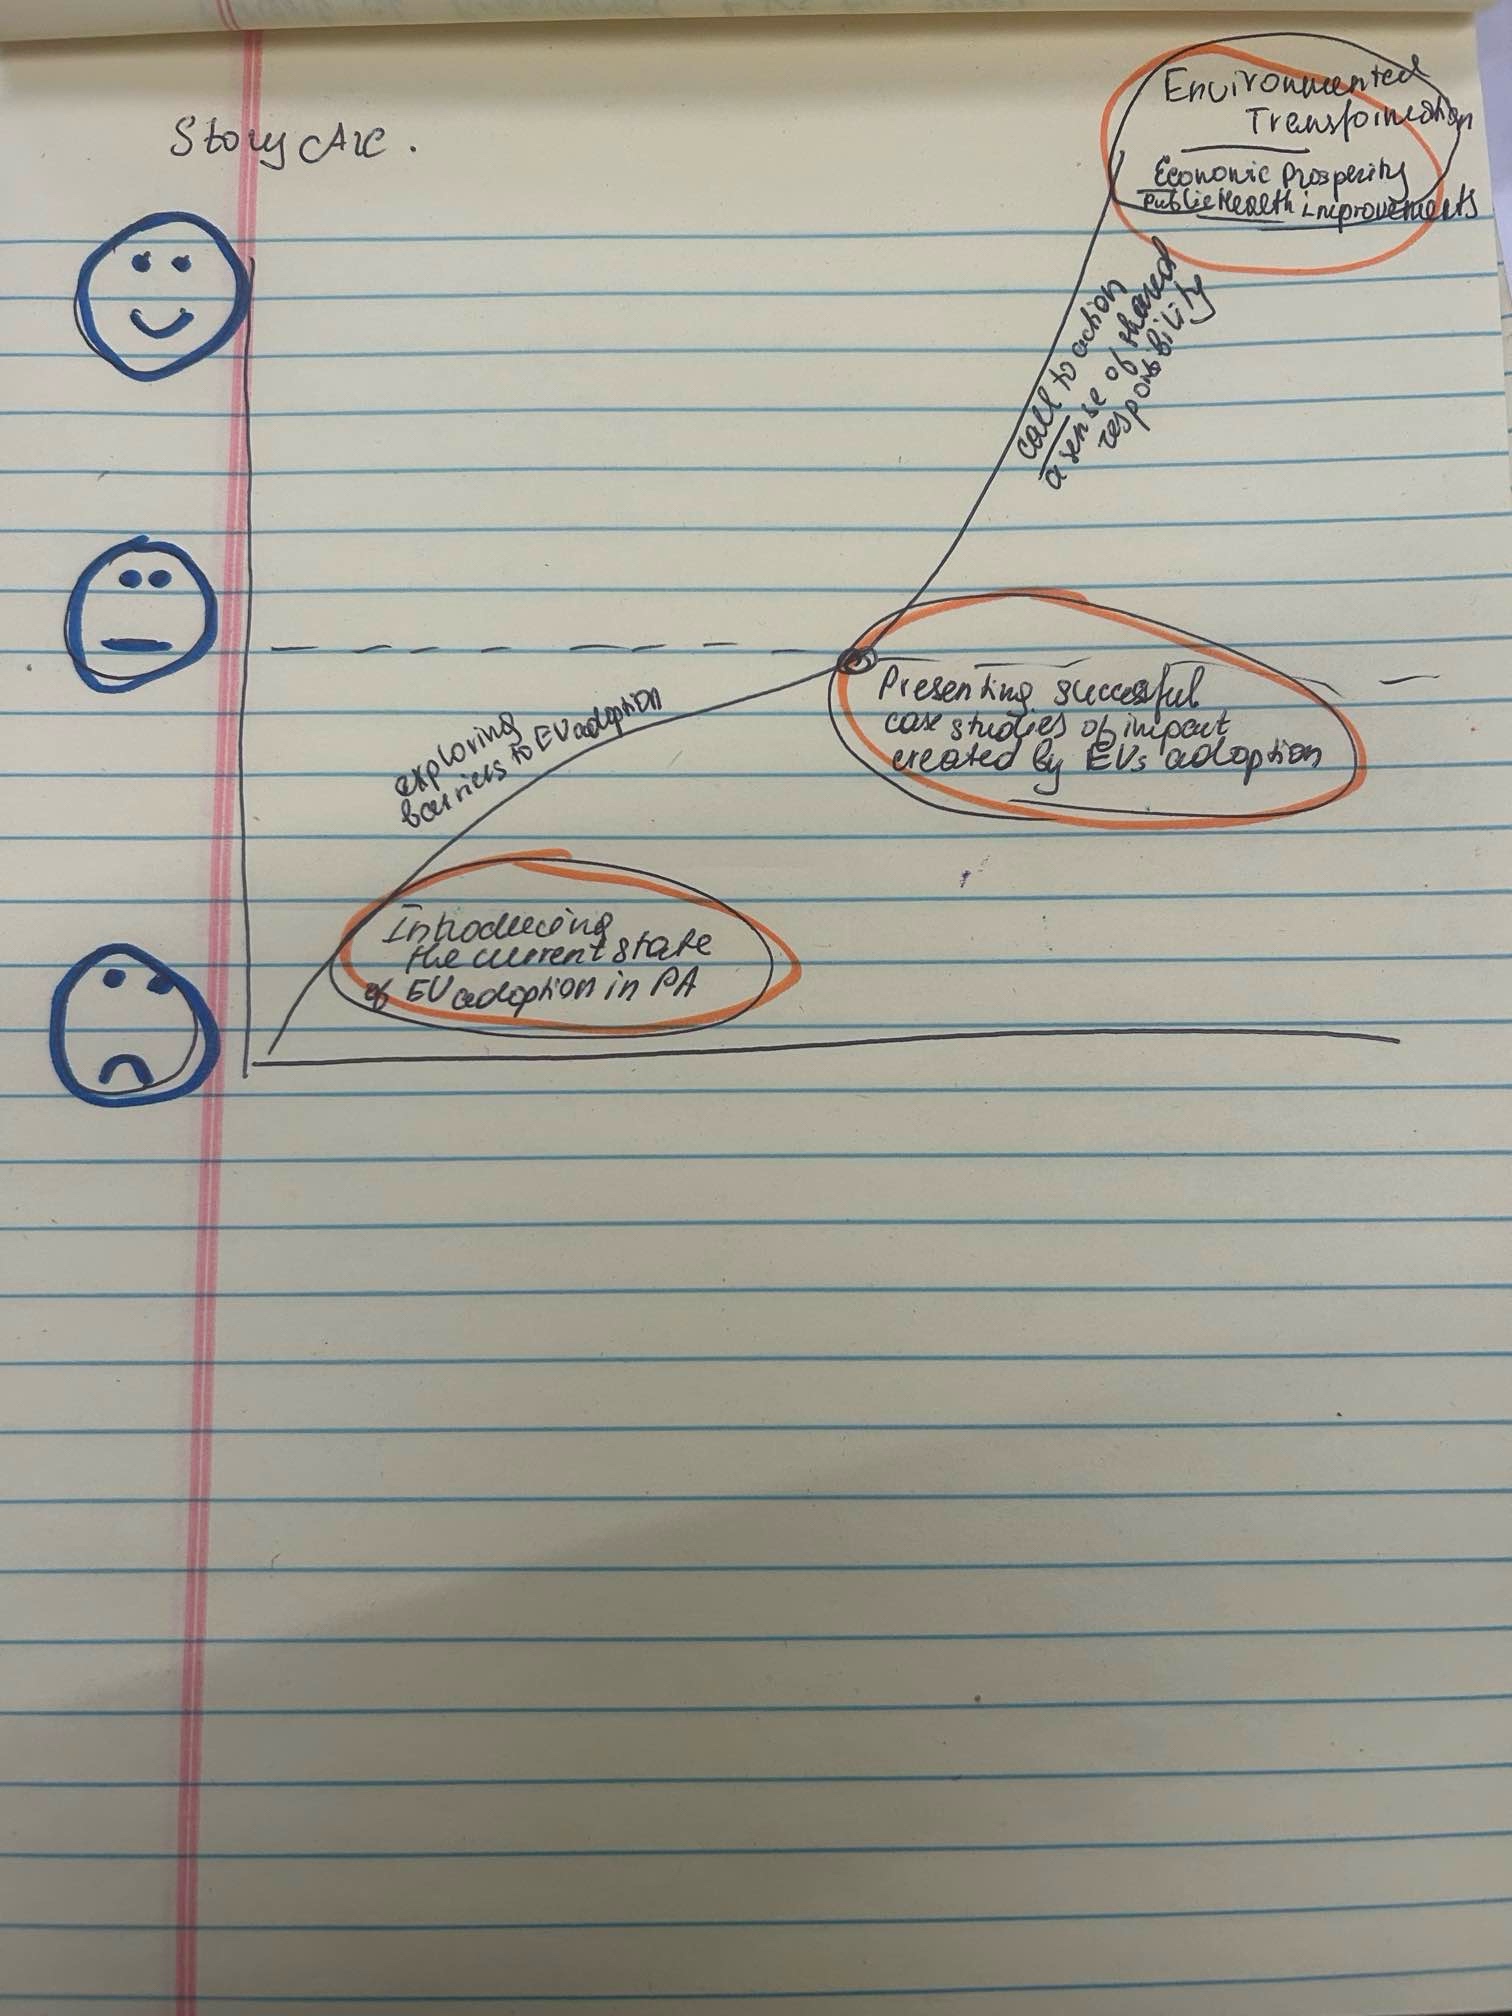 Story Arc.
Environmental
Transformation
Economic Prosperity
Public Health improvements
call to action
a sense of shared
responsibility
Presenting successful
case studies of impact
created by EVs adoption
exploring
barriers to EV adoption
Introducing
the current state
of EV adoption in PA